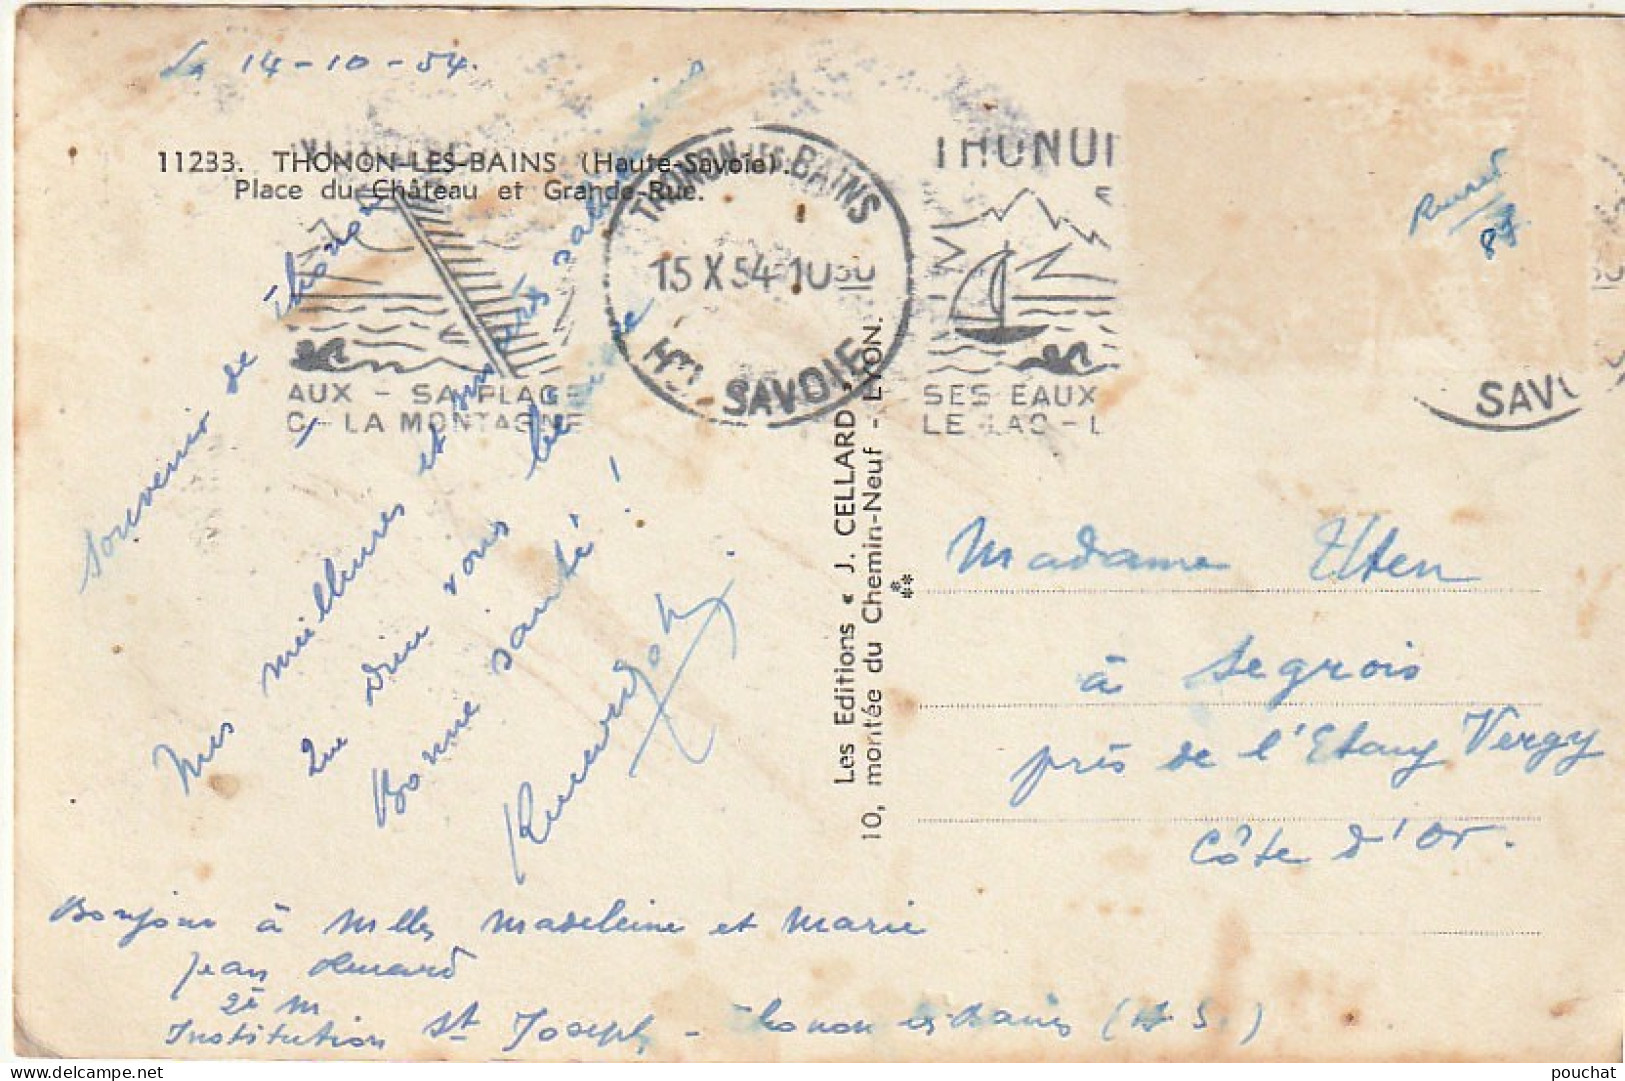 Le 14-10-54.
11233. THONON-LES-BAINS (Haute-Savoie).
Place du Château et Grande-Rue.
THONON-LES-BAINS
15 X 54-10
HTE SAVOIE
THONON
AUX - SA PLAGE
C - LA MONTAGNE
SES EAUX
LE LAC - L
SAVO
Souvenir de Thonon
Mes meilleures et mes très
Que Dieu vous
Bonne santé !
Les Editions « J. CELLARD », 
10, montée du Chemin-Neuf - LYON.
Madame
à Segrois
près de l'Etang Vergy
Côte d'Or.
Bonjour à Mlles Madeleine et Marie
Jean
2è M
Institution St Joseph - Thonon les Bains (H. S.)
delcampe.net
pouchat